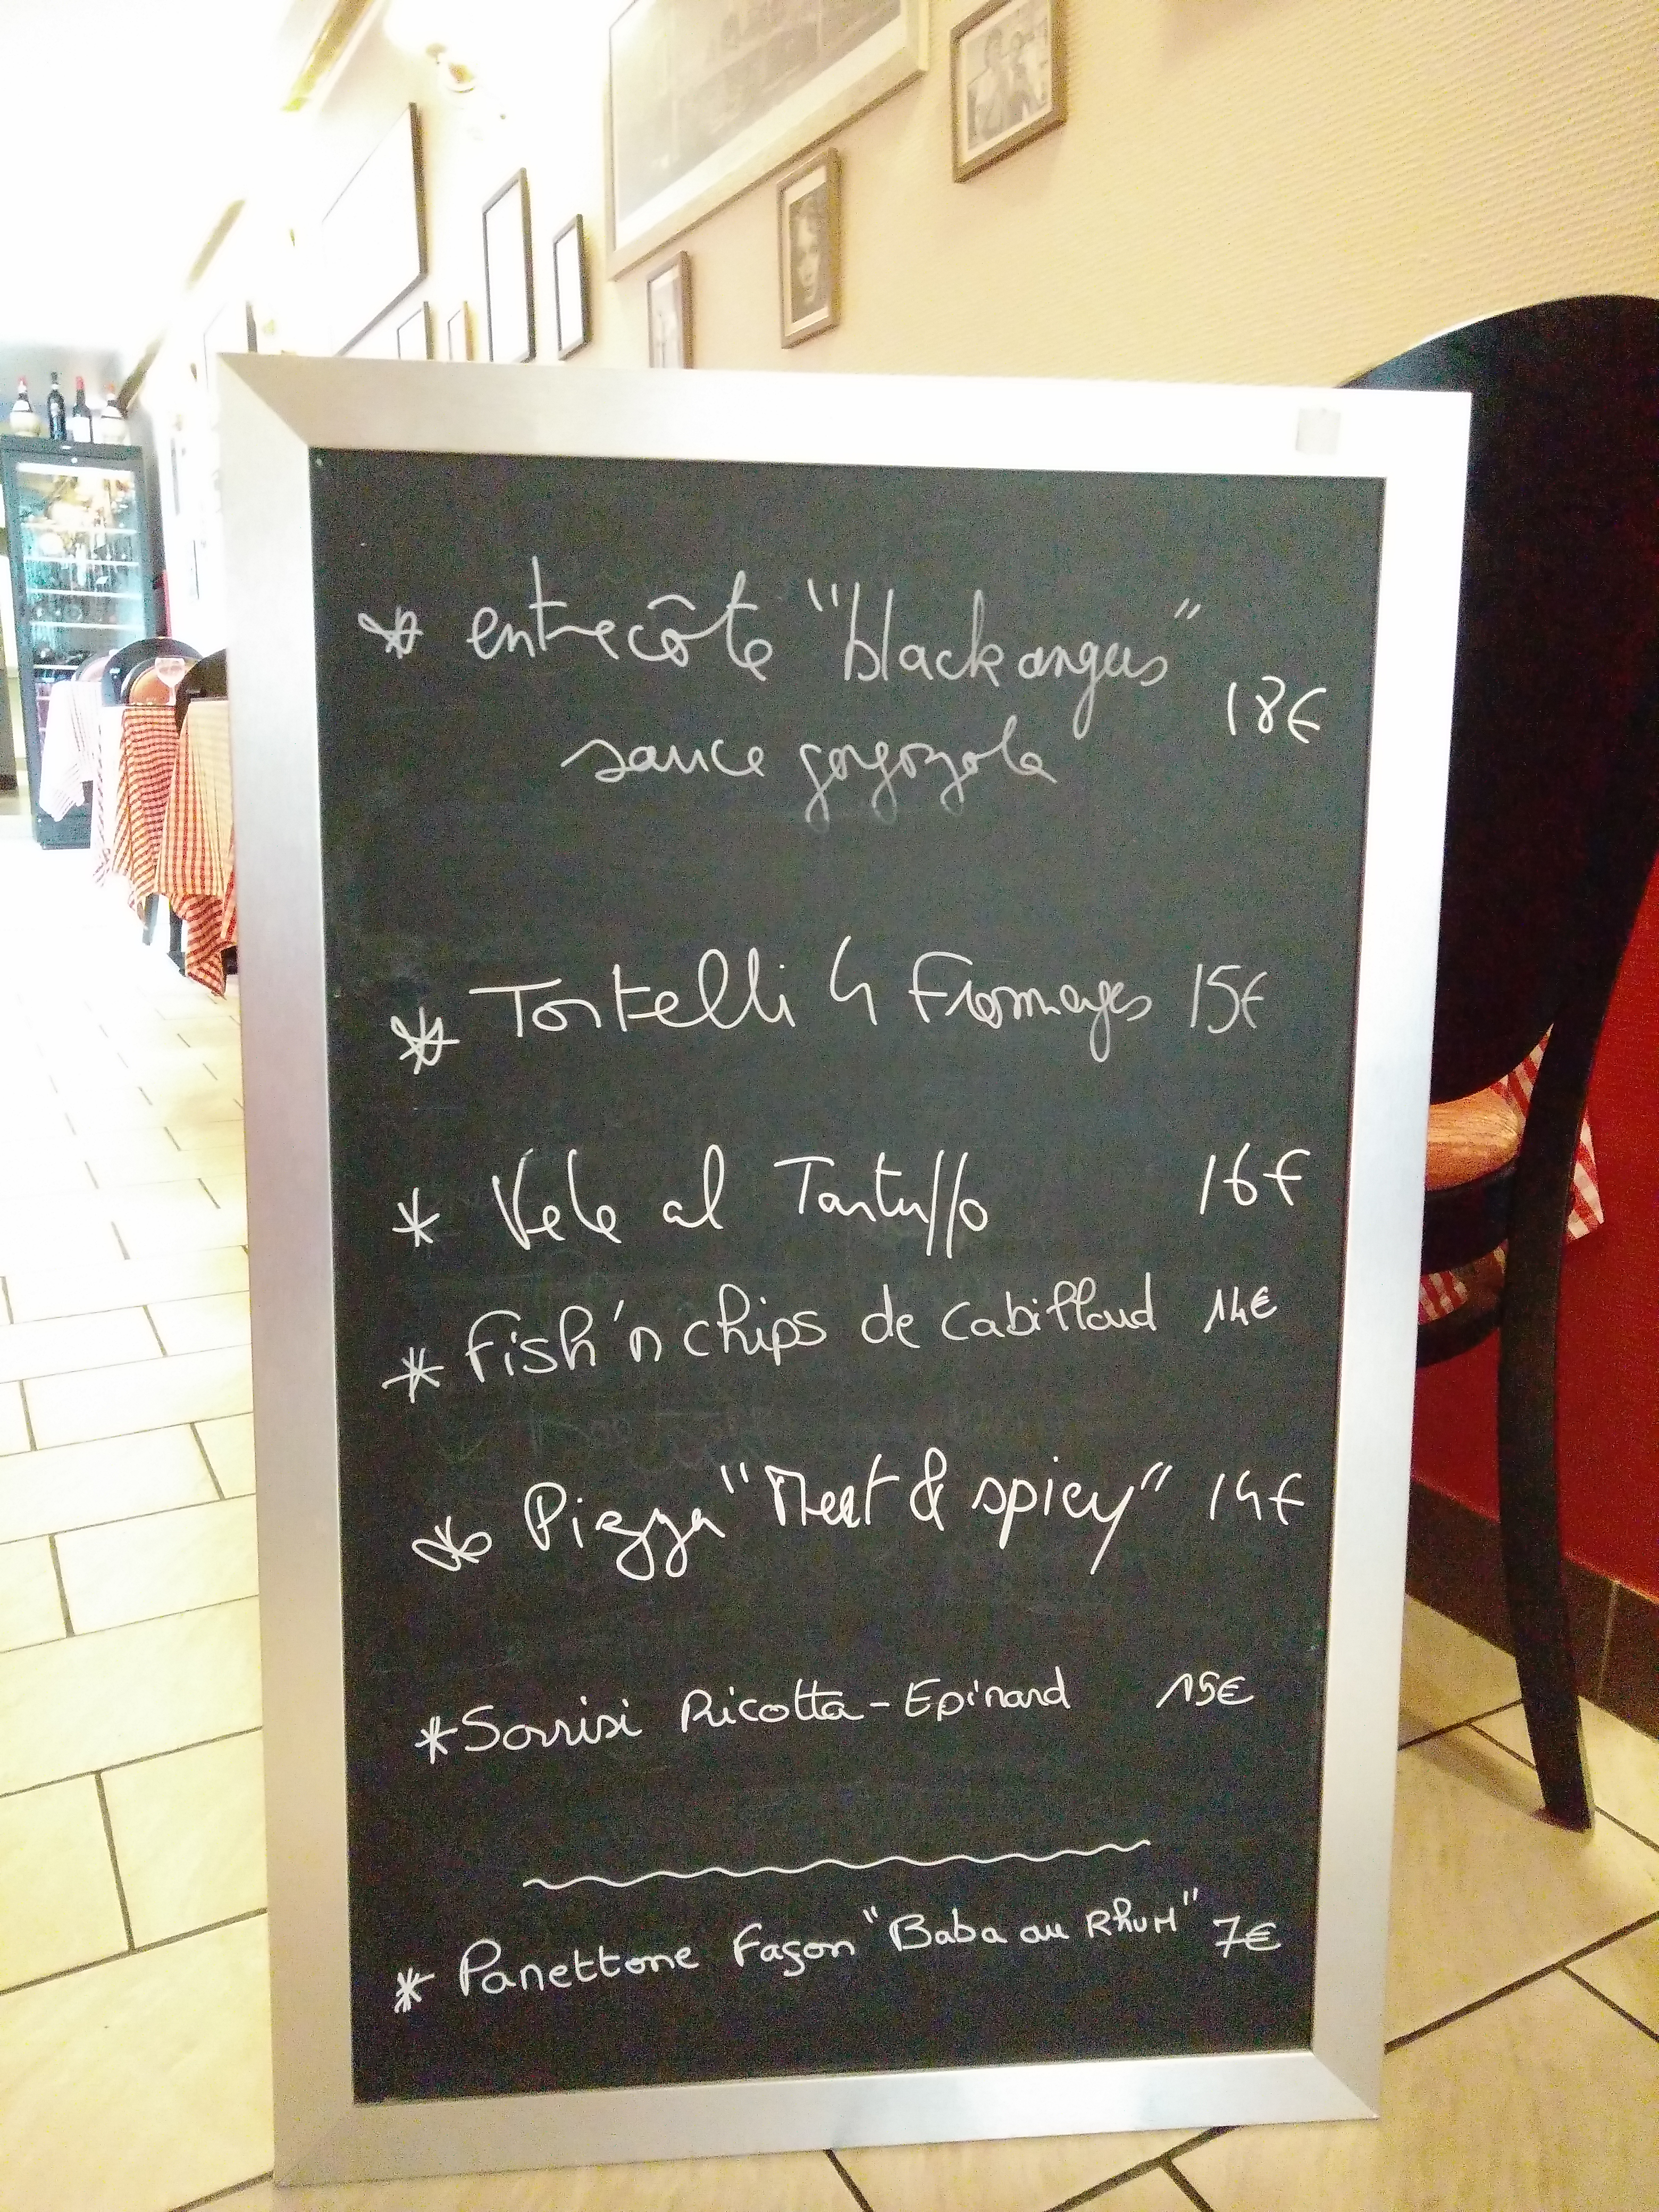 * entrecôte "black angus"
sauce gorgozola 18€
* Tortelli 4 Fromages 15€
* Vele al Tartuffo 16€
* Fish'n chips de cabillaud 14€
* Pizza "Meat & spicy" 14€
* Sorrisi Ricotta - Epinard 15€
* Panettone Façon "Baba au RhuM" 7€